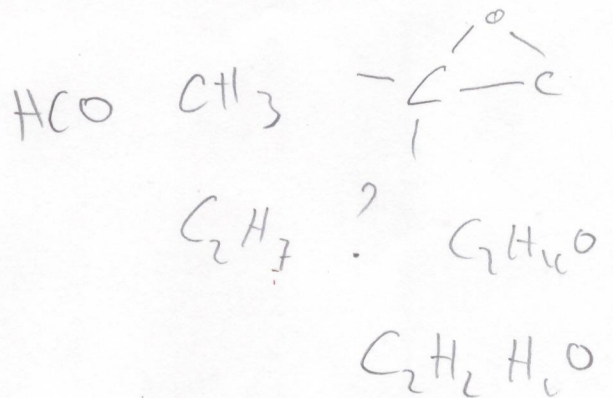 O
HCO CH3 C C
C2H7 ? C2H4O
C2H2 H O